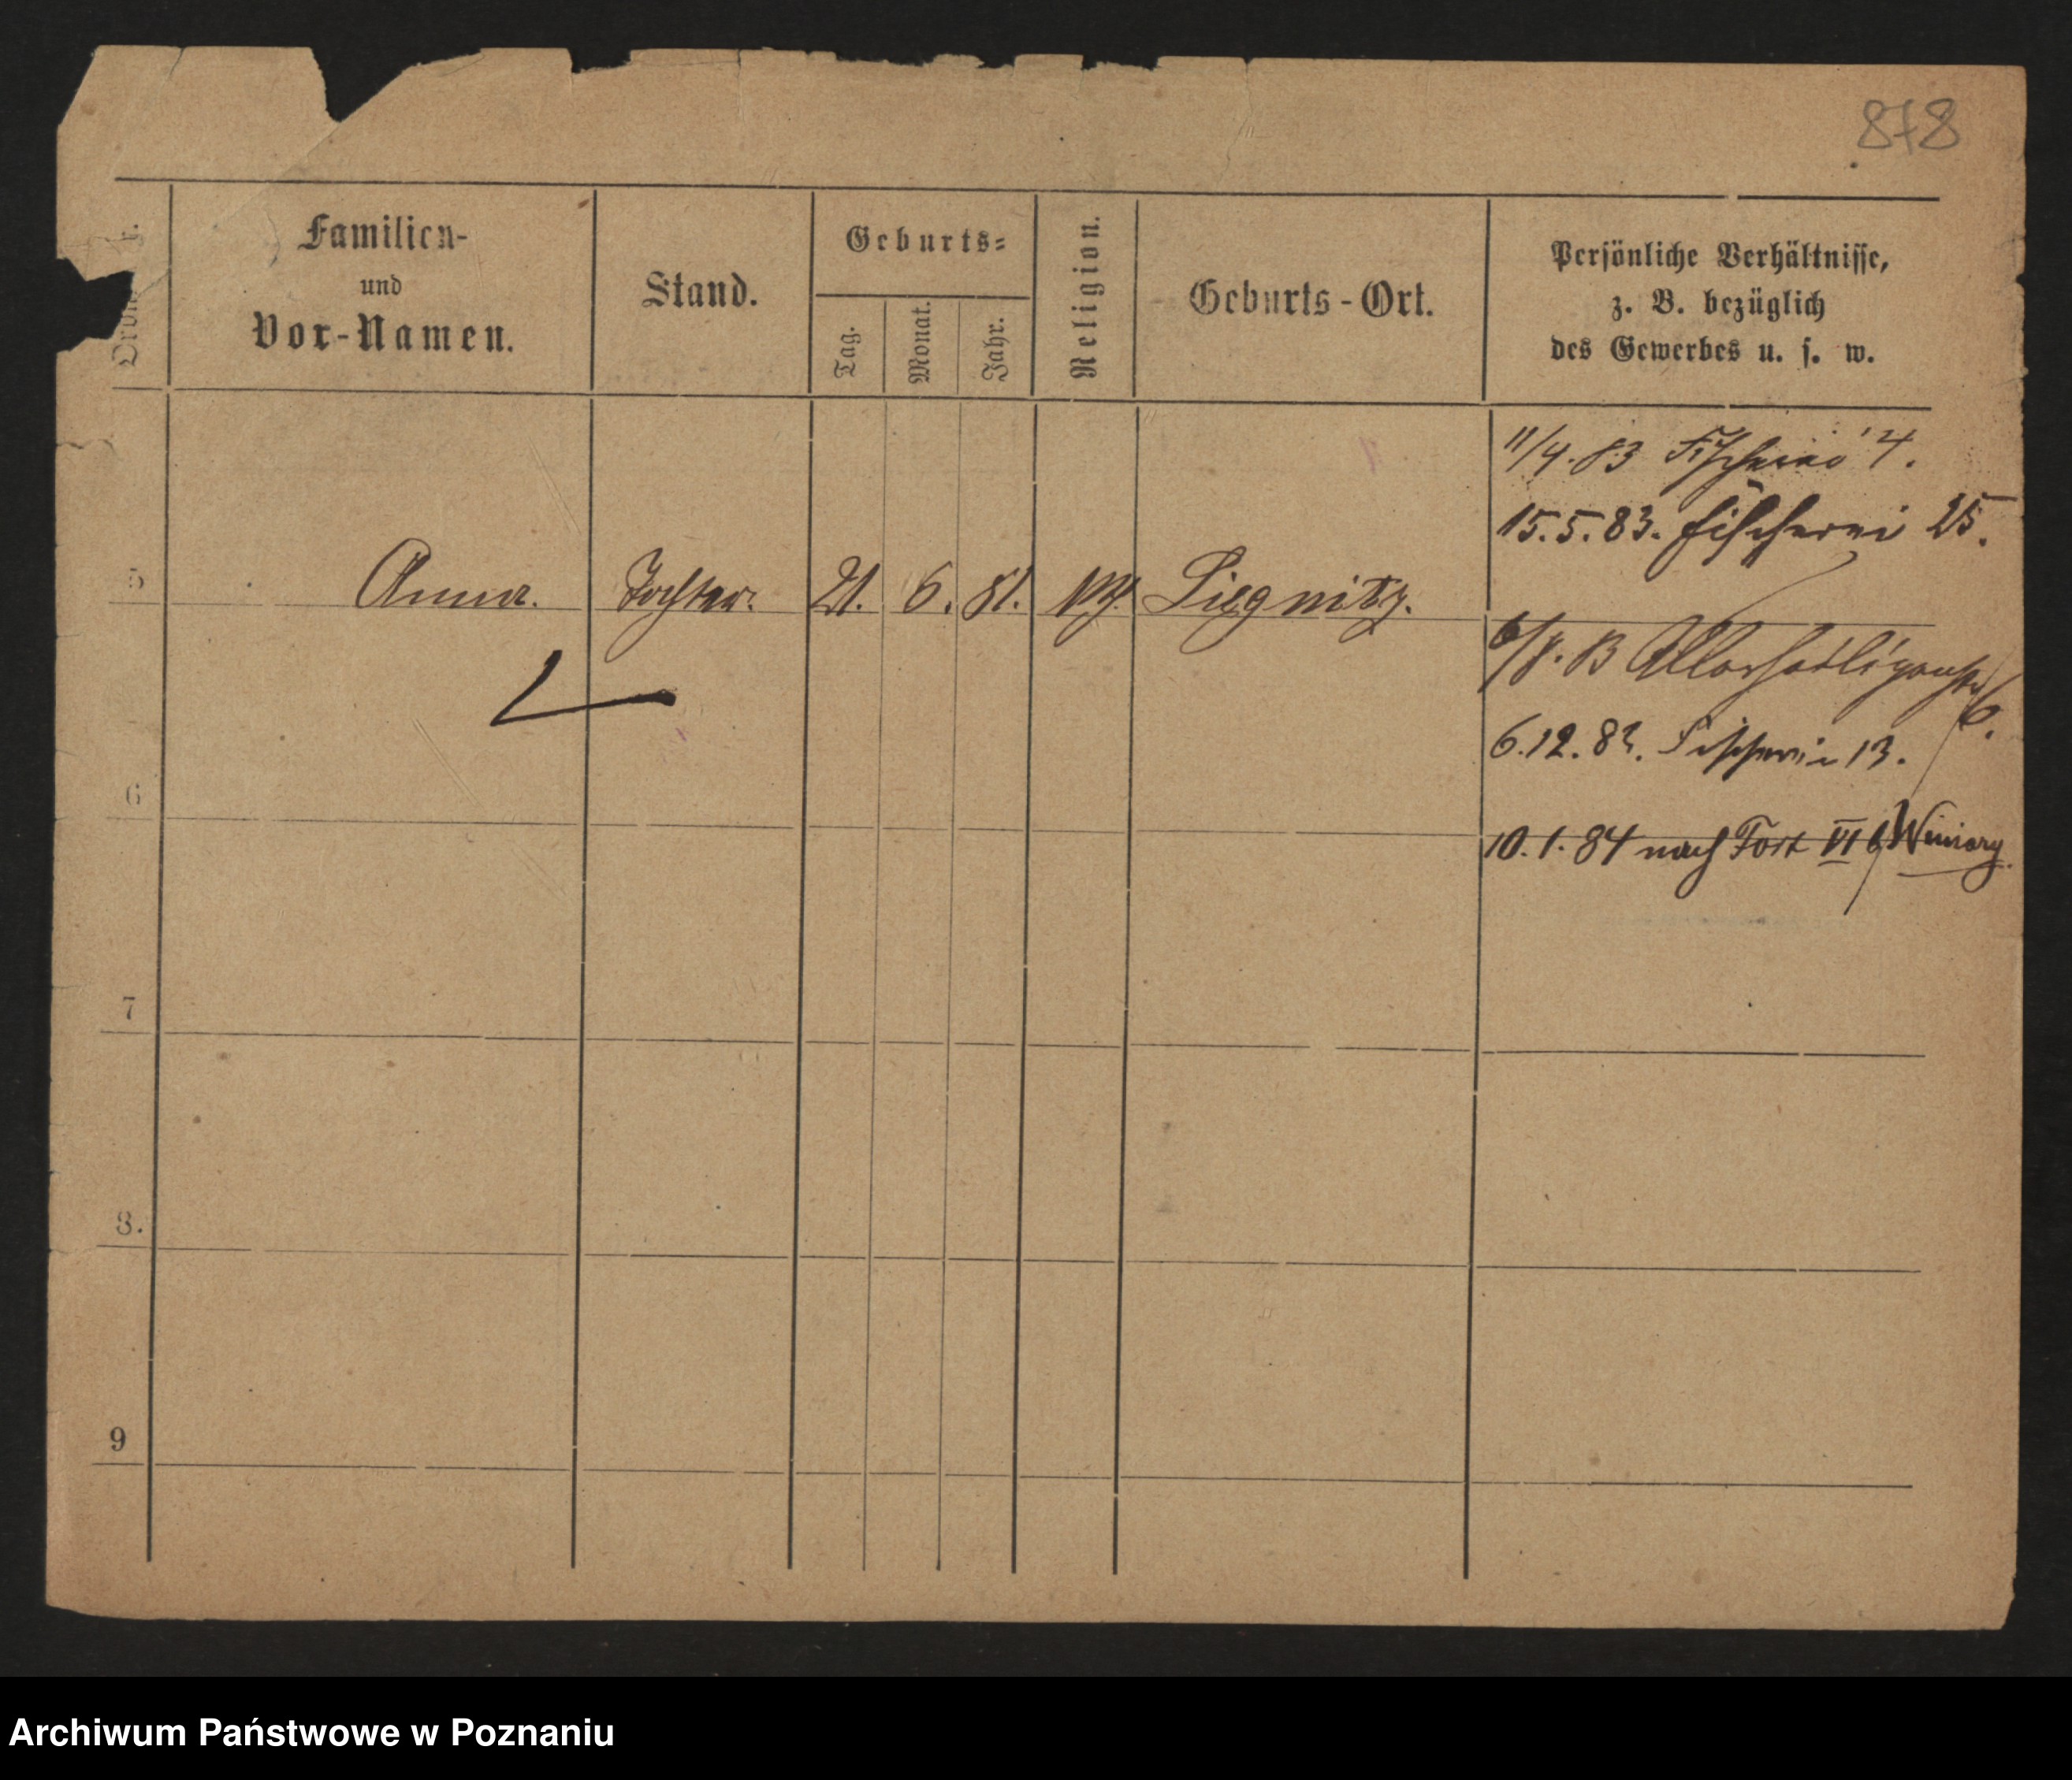 878
Familien-
und
Vor-Namen.
Stand.
Geburts-
Tag.
Monat.
Jahr.
Religion.
Geburts-Ort.
Persönliche Verhältnisse,
z. B. bezüglich
des Gewerbes u. s. w.
11/4. 83 Fischerei 4.
15.5.83. Fischerei 25.
5 Anna. Tochter. 21. 6. 81. Liegnitz.
6/8. 83 Allerheiligenstr 6.
6.12.83. Fischerei 13.
6
10.1.84 nach Fort VI Winiary.
7
8.
9
Archiwum Państwowe w Poznaniu